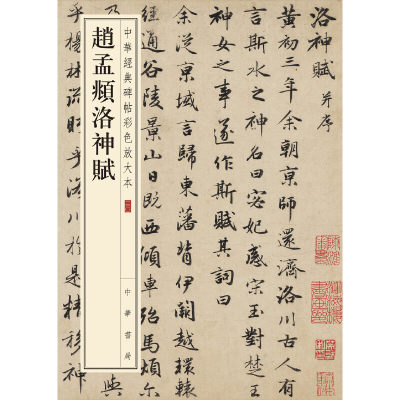 洛神賦 并序
黄初三年余朝京師還濟洛川古人有
言斯水之神名曰宓妃感宋玉對楚王
神女之事遂作斯賦其詞曰
余從京域言歸東藩背伊闕越轘轅
經通谷陵景山日既西傾車殆馬煩尔
中華經典碑帖彩色放大本
趙孟頫洛神賦
中華書局
乃
與
乎楊林流眄乎洛川於是精移神